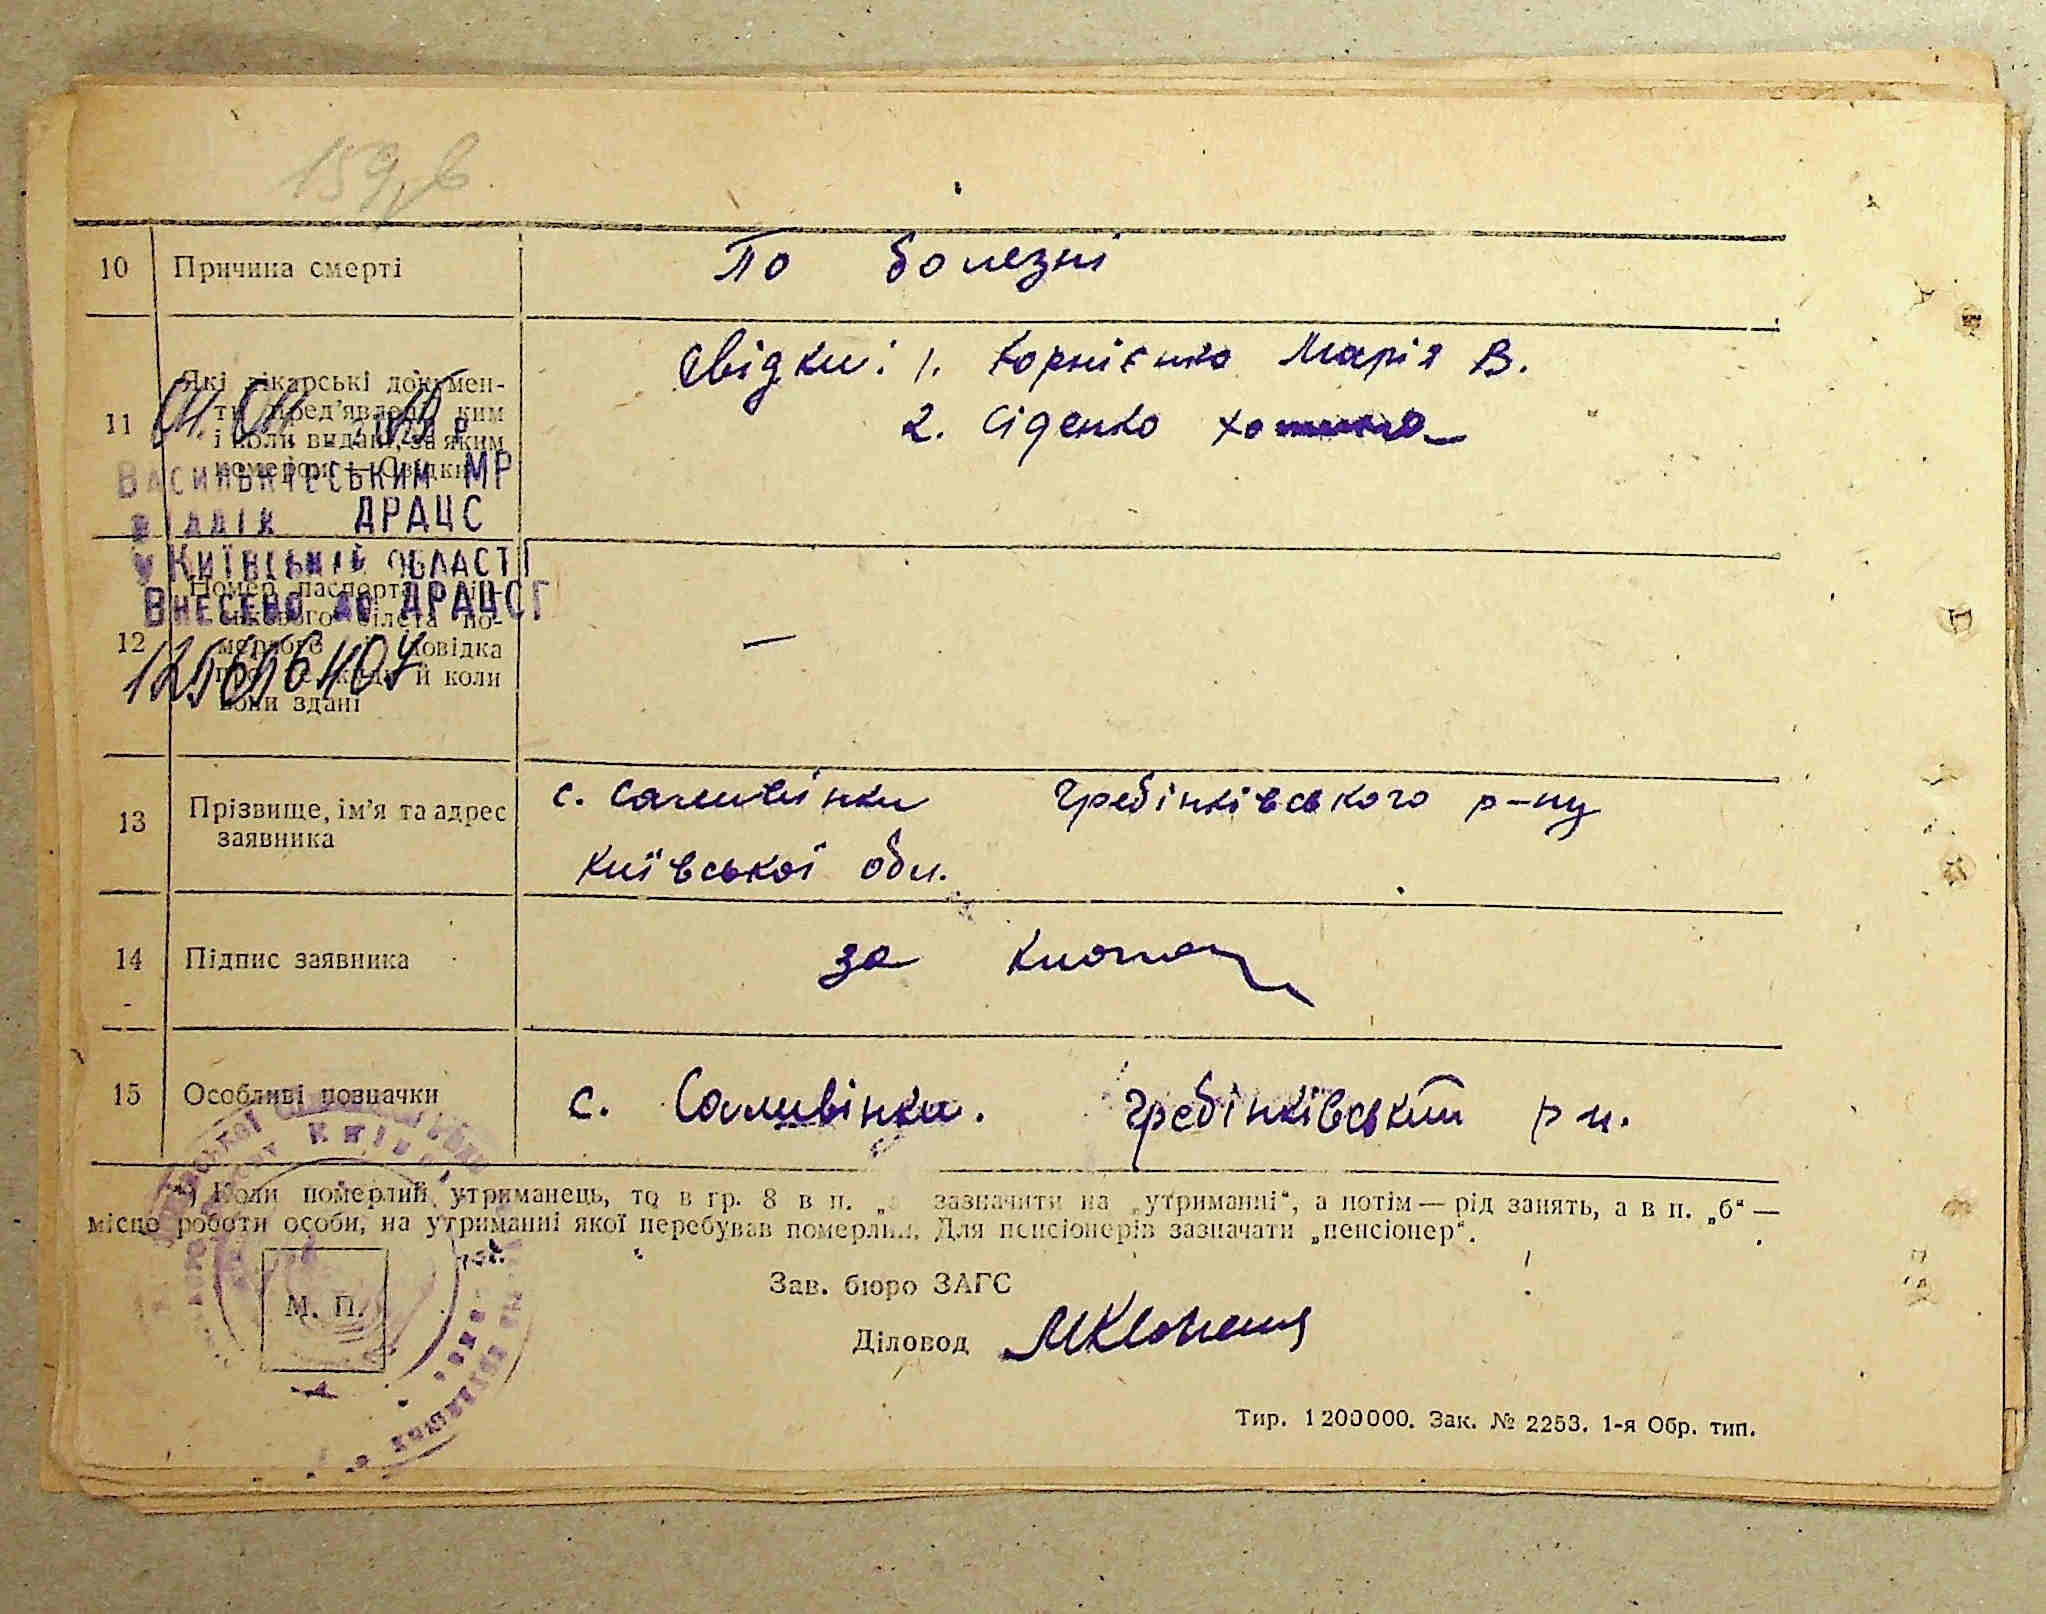 10 Причина смерті По болезні
Свідки: 1. Корнієнко Марія В.
2. Сіденко
11 Які лікарські докумен-
ти пред'явлені, ким
і коли видані, за яким
номером — Свідки
Васильківським МР
відділ ДРАЦС
у Київській області
Внесено до ДРАЦСГ
12 Номер паспорта
білета по-
мерлого довідка
й коли
вони здані
—
с. Саливінки Гребінківського р-ну
13 Прізвище, ім'я та адрес
заявника
Київської обл.
14 Підпис заявника за
15 Особливі позначки с. Саливінки. Гребінківський р-н.
*) Коли померлий утриманець, то в гр. 8 в п. зазначити на „утриманні“, а потім — рід занять, а в п. „б“ —
місце роботи особи, на утриманні якої перебував померлий. Для пенсіонерів зазначати „пенсіонер“.
М. П.
Зав. бюро ЗАГС
Діловод
Тир. 1200000. Зак. № 2253. 1-я Обр. тип.